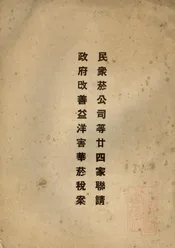 民衆菸公司等廿四家聯請
政府改善益洋害華菸稅案